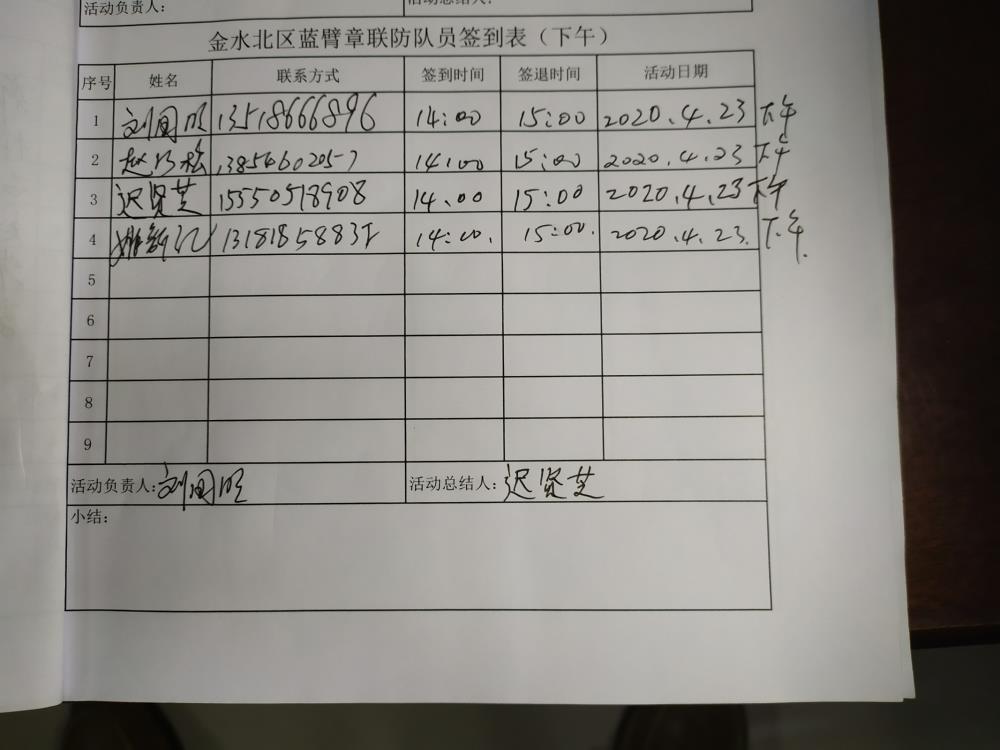 活动负责人：
金水北区蓝臂章联防队员签到表（下午）
序号 姓名 联系方式 签到时间 签退时间 活动日期
1 刘国旺 13518666896 14:00 15:00 2020.4.23 下午
2 赵 14:00 15:00 2020.4.23 下午
3 迟贤芝 15550518908 14:00 15:00 2020.4.23 下午
4 14:00. 15:00. 2020.4.23. 下午.
5
6
7
8
9
活动负责人：刘国旺 活动总结人：迟贤芝
小结：